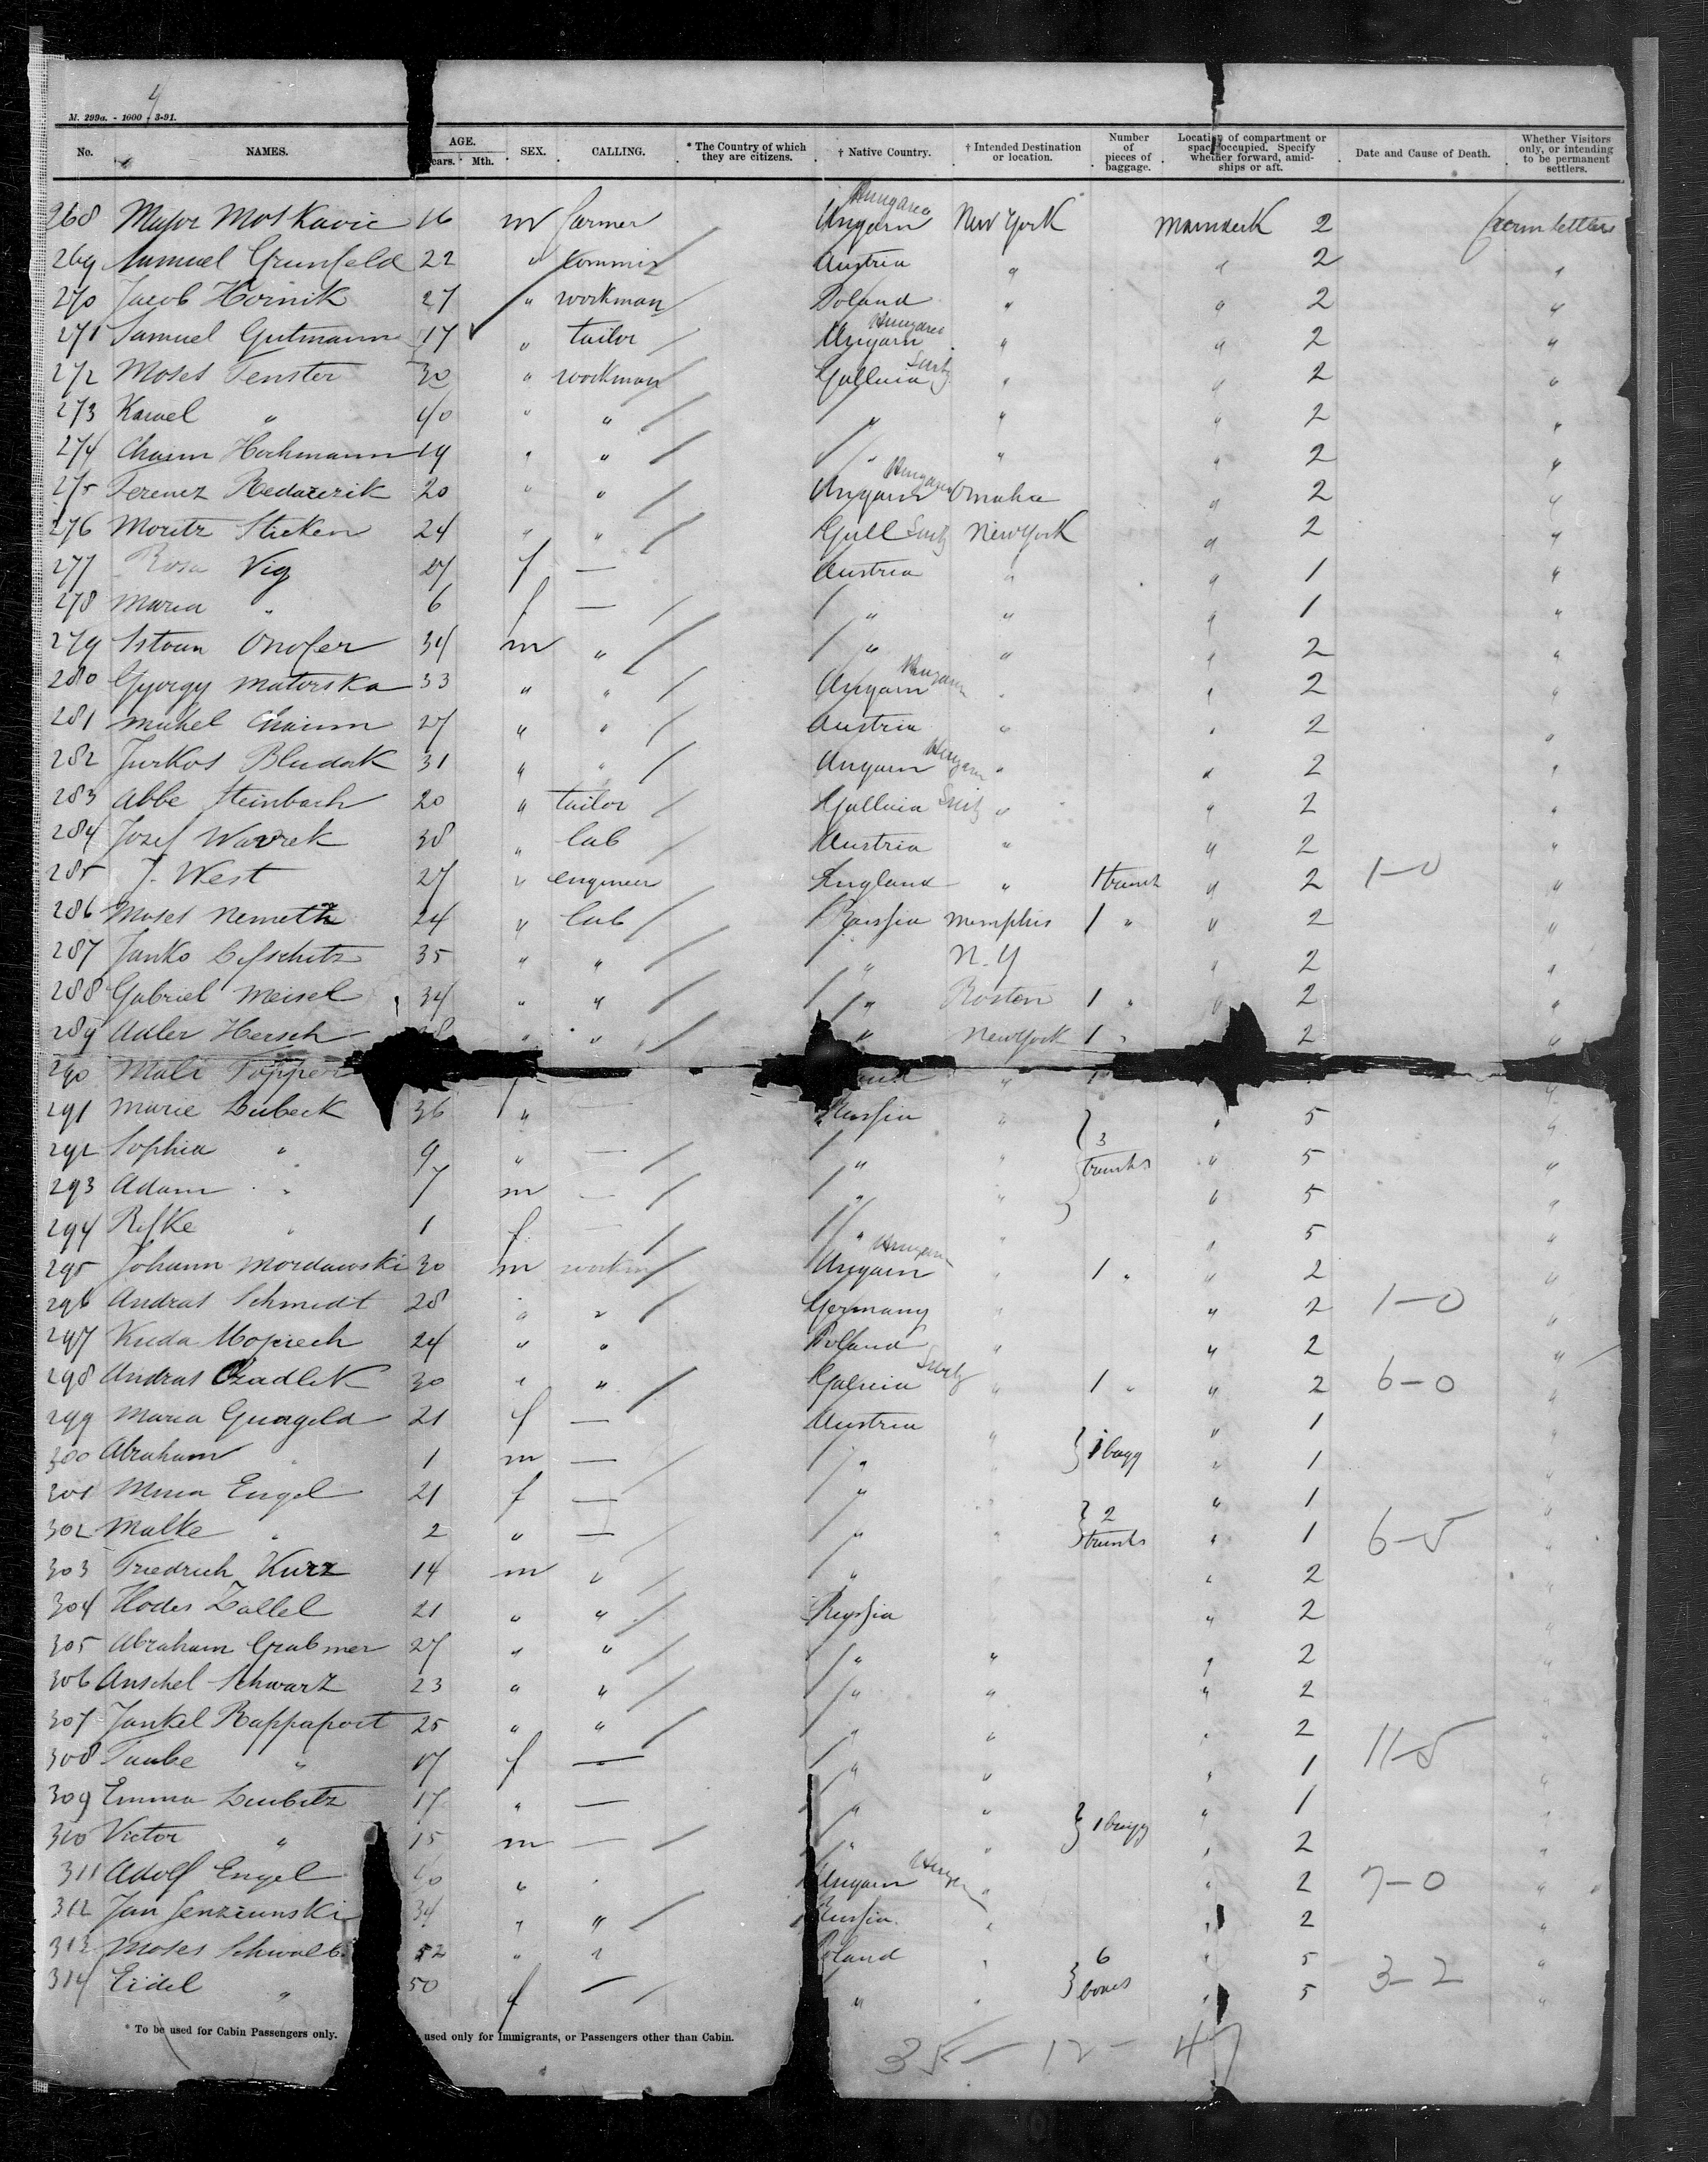 4
M. 299a. - 1000 - 3-91.
No. NAMES. AGE. Years. Mth. SEX. CALLING. * The Country of which they are citizens. † Native Country. † Intended Destination or location. Number of pieces of baggage. Location of compartment or space occupied. Specify whether forward, amidships or aft. Date and Cause of Death. Whether Visitors only, or intending to be permanent settlers.
268 Major Moskavic 16 m farmer Ungarn Hungarea New York maindeck 2
269 Samuel Grunfeld 22 " Commis Austria " " 2 "
270 Jacob Hornik 27 " workman Poland " " 2 "
271 Samuel Gutmann 17 " tailor Ungarn " " 2 "
272 Moses Fenster 30 " workman Gallicia " " 2 "
273 Karael " 40 " " " " " 2 "
274 Chaim Hochmann 19 " " " " " 2 "
275 Ferencz 20 " " Ungarn Omaha " 2 "
276 Moritz Sticken 24 " " Gall New York " 2 "
277 Rosa Vig 27 f — Austria " " 1 "
278 Maria " 6 f — " " " 1 "
279 Istvan Onofer 34 m " " " " 2 "
280 Gyorgy Matorska 33 " " Ungarn " " 2 "
281 Michel Chaim 27 " " Austria " " 2 "
282 Jurkos Bludak 31 " " Ungarn " " 2 "
283 Abbe Steinbach 20 " tailor Gallicia " " 2 "
284 Josef Wavrek 38 " lab Austria " " 2 "
285 J. West 27 " engineer England " 1 trunk " 2 1-0 "
286 Moses Nemeth 24 " lab Russia Memphis 1 " " 2 "
287 Janko Lifschitz 35 " " " N.Y " 2 "
288 Gabriel Meisel 34 " " " Boston 1 " " 2 "
289 Adler Hersch " " " New York 1 " 2 "
290 Mali Topper " 1 "
291 Marie Lubeck 36 " — Russia " 3 trunks " 5 "
292 Sophia " 9 " — " " " 5 "
293 Adam " 7 m — " " " 5 "
294 Rifke " 1 f — " " " 5 "
295 Johann Mordawski 30 m workm Ungarn " 1 " " 2 "
296 Andras Schmidt 28 " " Germany " " 2 1-0 "
297 Kuda Wojciech 24 " " Poland " " 2 "
298 Andras Czadlek 30 " " Galicia " 1 " " 2 6-0 "
299 Maria 21 f — Austria " 1 bagg " 1 "
300 Abraham " 1 m — " " " 1 "
301 Mina Engel 21 f — " " 2 trunks " 1 "
302 Malke " 2 " — " " " 1 6-5 "
303 Friedrich Kurz 14 m " " " 2 "
304 Hodes Zallel 21 " " Russia " 2 "
305 Abraham Grabmer 27 " " " " " 2 "
306 Anschel Schwarz 23 " " " " " 2 "
307 Jankel Rappaport 25 " " " " " 2 "
308 Taube " 17 f — " " " 1 11-5 "
309 Emma Leubitz 17 " — " " 1 bagg " 1 "
310 Victor " 15 m — " " " 2 "
311 Adolf Engel 40 " " Ungarn " " 2 7-0 "
312 Jan Jenziunski 34 " " Russia " " 2 "
313 Moses Schwalb 52 " " Poland " 6 boxes " 5 "
314 Eidel " 50 f — " " " 5 3-2 "
* To be used for Cabin Passengers only. used only for Immigrants, or Passengers other than Cabin.
35 — 12 — 47